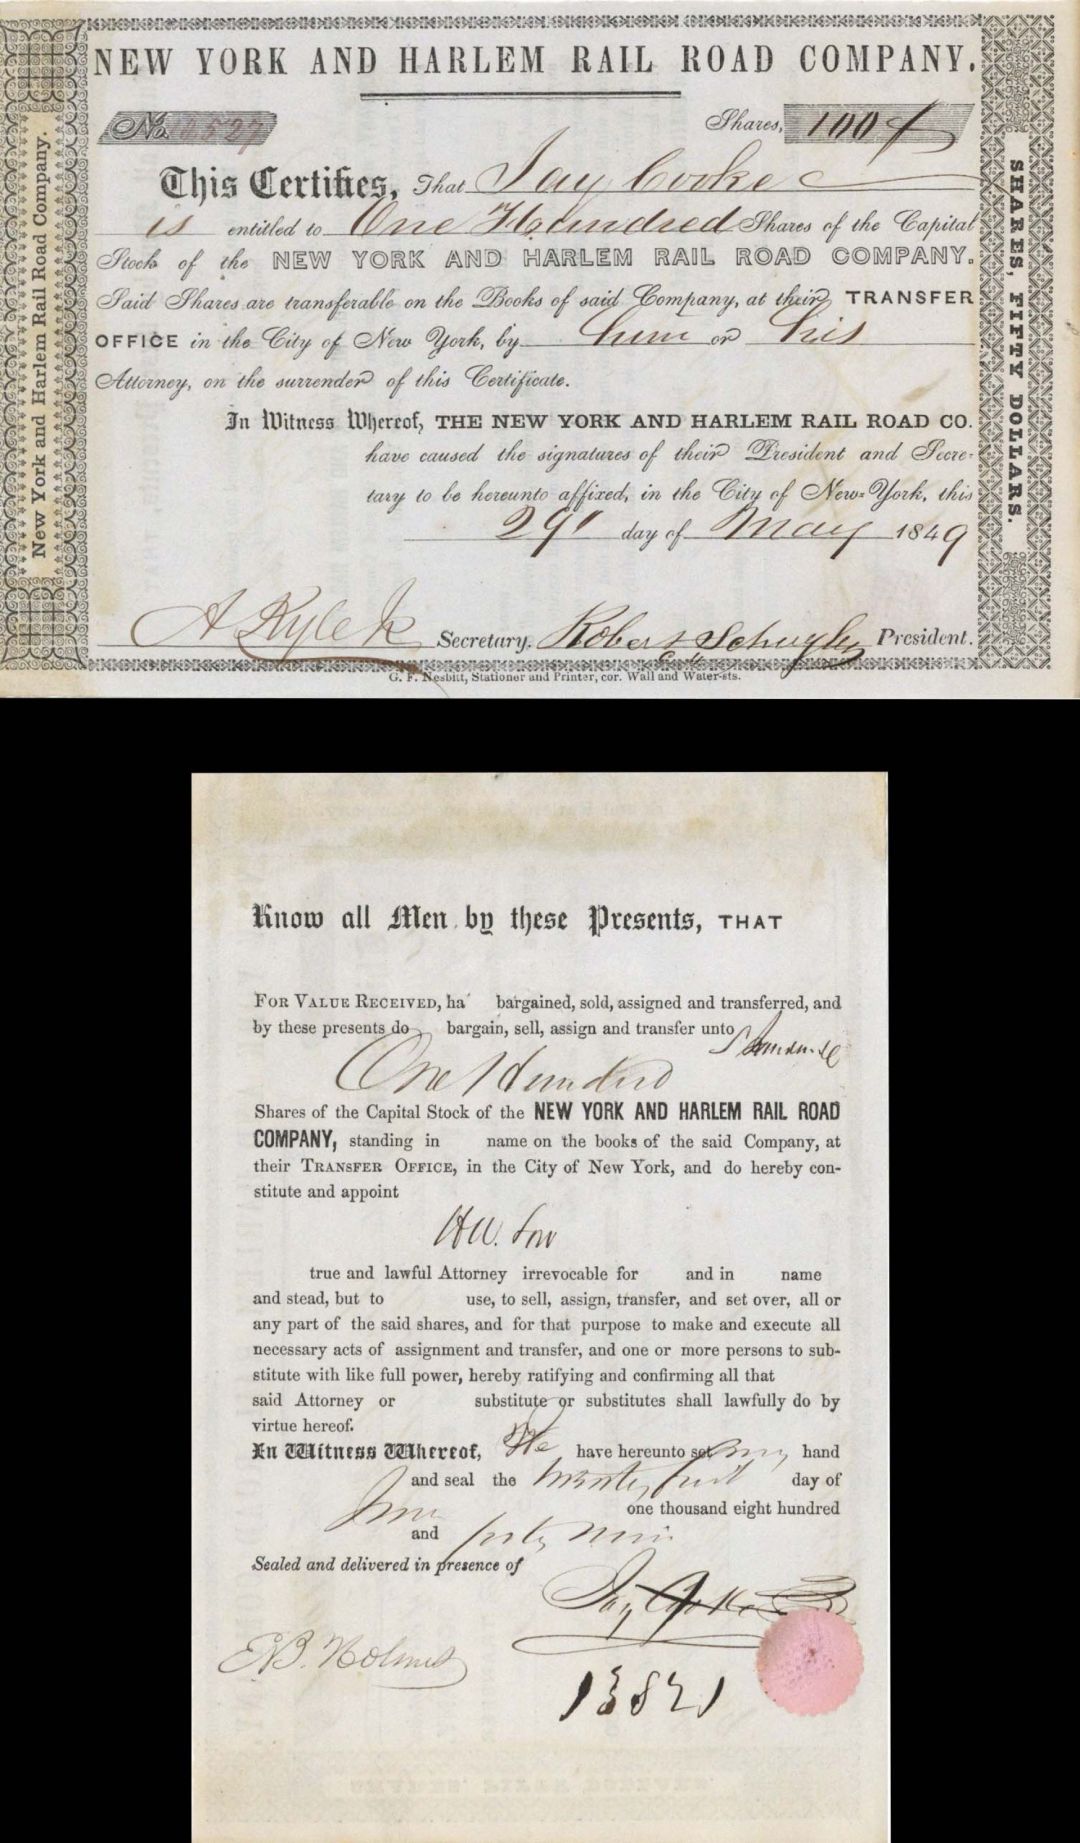 NEW YORK AND HARLEM RAIL ROAD COMPANY.
No. Shares, 100
This Certifies, That Jay Cooke
is entitled to One Hundred Shares of the Capital
Stock of the NEW YORK AND HARLEM RAIL ROAD COMPANY.
Said Shares are transferable on the Books of said Company, at their TRANSFER
OFFICE in the City of New York, by him or his
Attorney, on the surrender of this Certificate.
In Witness Whereof, THE NEW YORK AND HARLEM RAIL ROAD CO.
have caused the signatures of their President and Secre-
tary to be hereunto affixed, in the City of New-York, this
29" day of May 1849
A Kyle Jr Secretary. Robert Schuyler President.
G. F. Nesbitt, Stationer and Printer, cor. Wall and Water-sts.
New York and Harlem Rail Road Company.
SHARES, FIFTY DOLLARS.
Know all Men by these Presents, THAT
FOR VALUE RECEIVED, ha bargained, sold, assigned and transferred, and
by these presents do bargain, sell, assign and transfer unto
One Hundred
Shares of the Capital Stock of the NEW YORK AND HARLEM RAIL ROAD
COMPANY, standing in name on the books of the said Company, at
their TRANSFER OFFICE, in the City of New York, and do hereby con-
stitute and appoint
true and lawful Attorney irrevocable for and in name
and stead, but to use, to sell, assign, transfer, and set over, all or
any part of the said shares, and for that purpose to make and execute all
necessary acts of assignment and transfer, and one or more persons to sub-
stitute with like full power, hereby ratifying and confirming all that
said Attorney or substitute or substitutes shall lawfully do by
virtue hereof.
In Witness Whereof, have hereunto set my hand
and seal the day of
one thousand eight hundred
and forty nine
Sealed and delivered in presence of
Jay Cooke
E.B. Holmes
13821